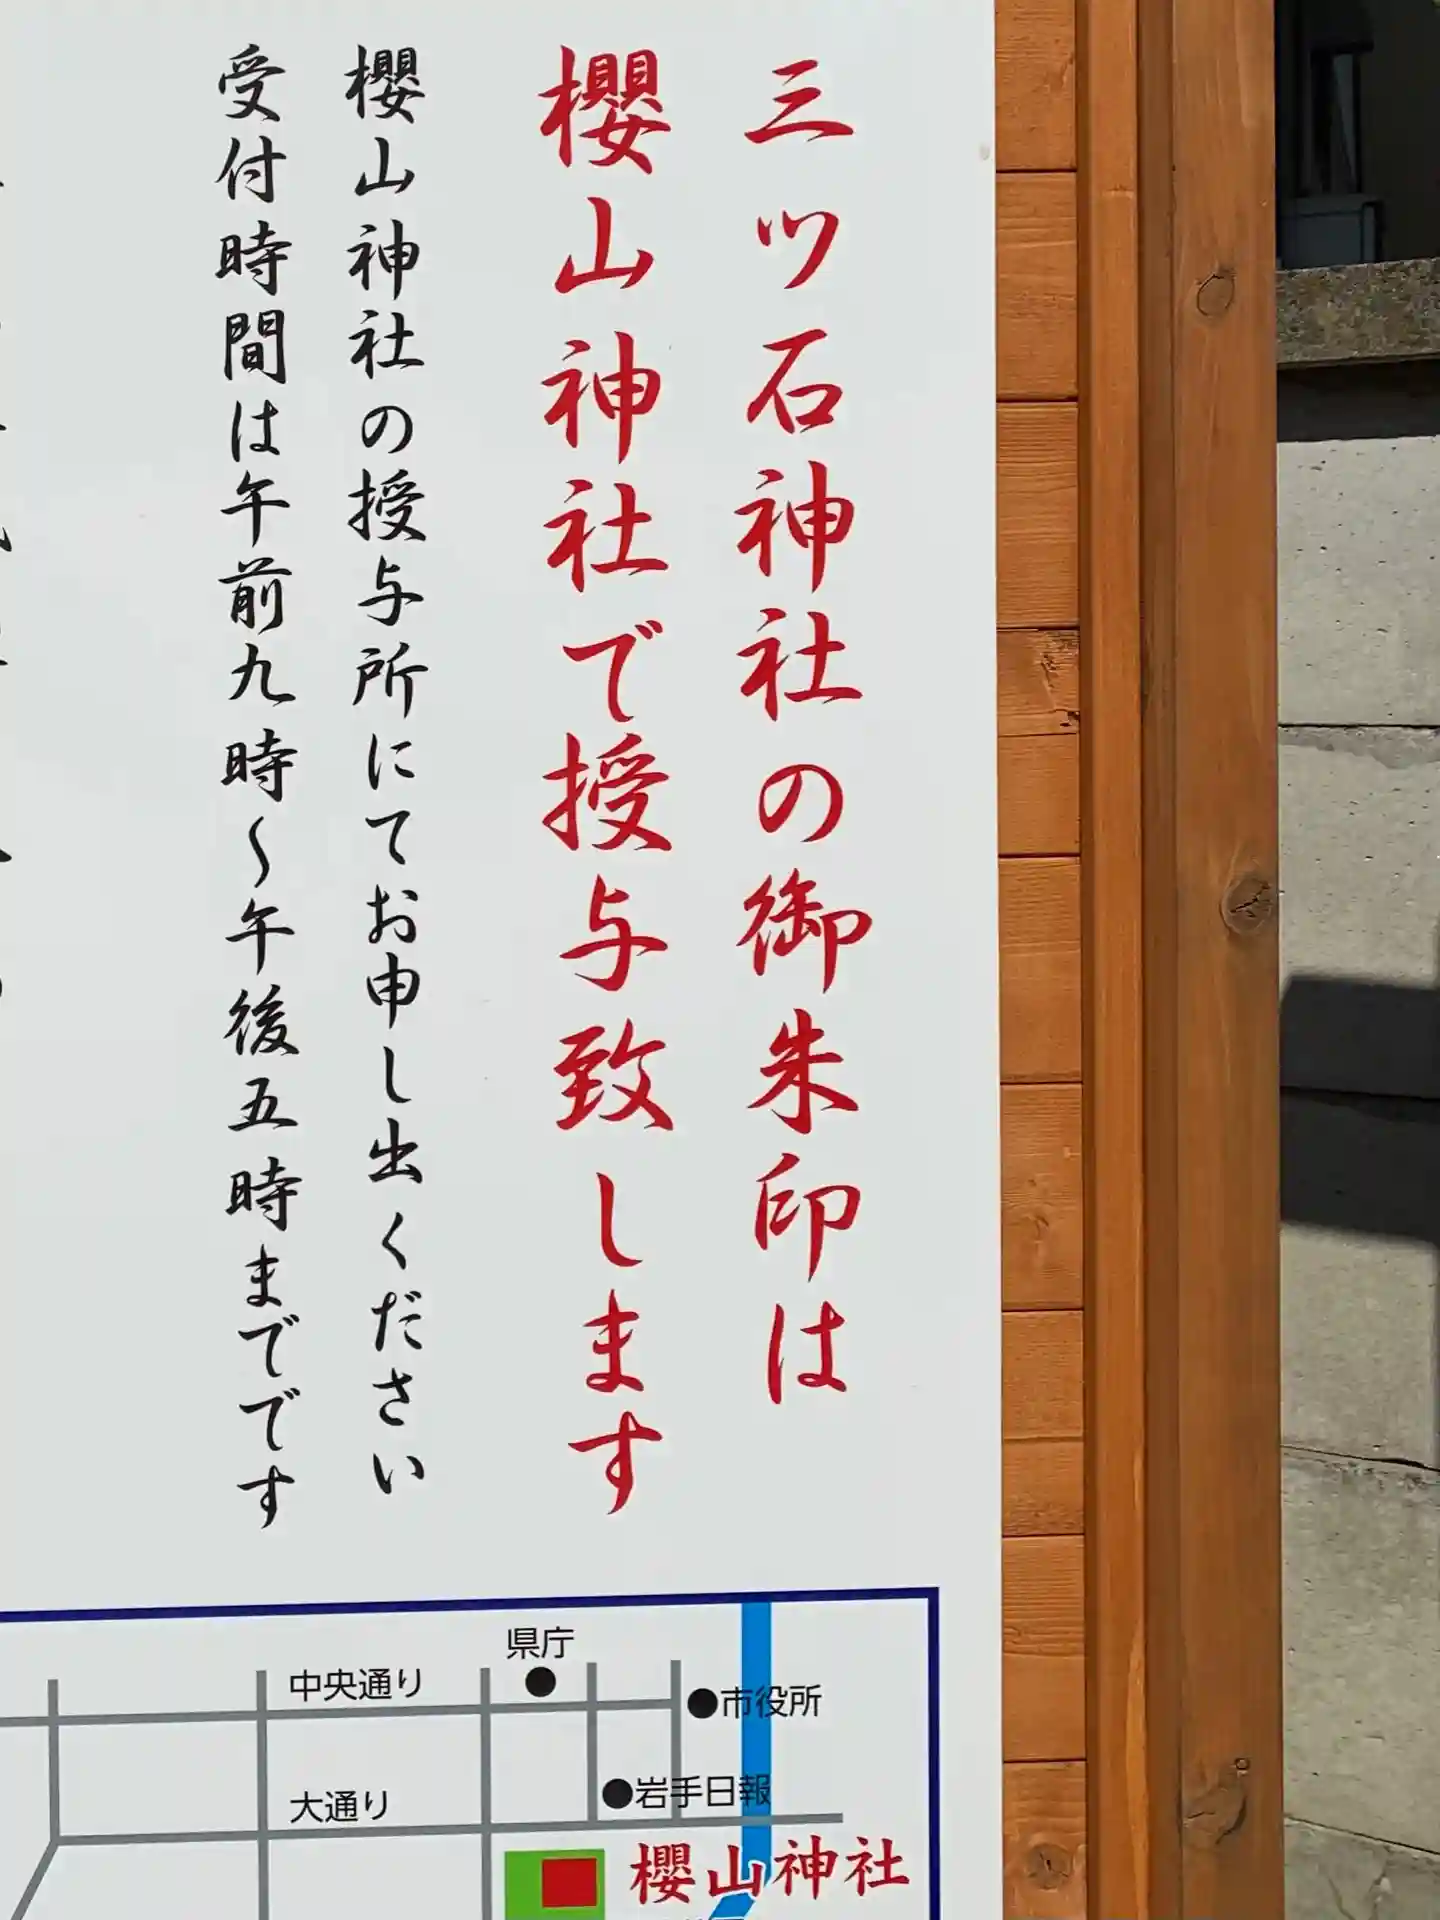 三ツ石神社の御朱印は
櫻山神社で授与致します
櫻山神社の授与所にてお申し出ください
受付時間は午前九時～午後五時までです
県庁
中央通り
市役所
岩手日報
大通り
櫻山神社